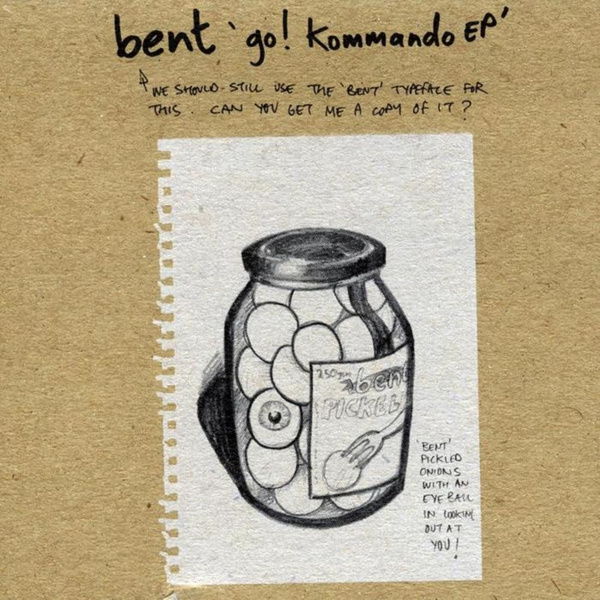 bent 'go! Kommando EP'
WE SHOULD STILL USE THE 'BENT' TYPEFACE FOR
THIS. CAN YOU GET ME A COPY OF IT?
250gm
bent
PICKEL
'BENT'
PICKLED
ONIONS
WITH AN
EYEBALL
IN LOOKING
OUT AT
YOU!